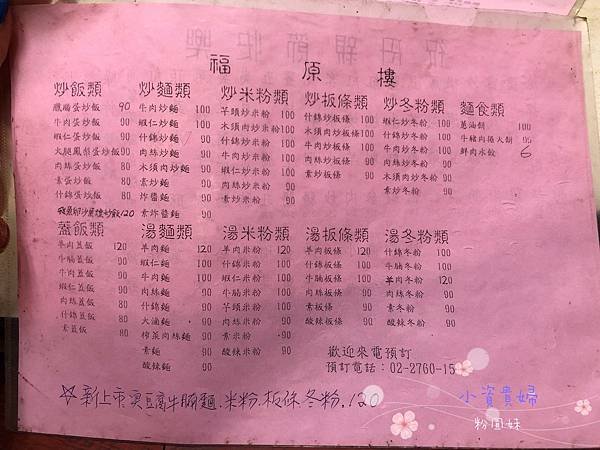 福原樓
炒飯類
臘腸蛋炒飯 90
牛肉蛋炒飯 90
蝦仁蛋炒飯 90
火腿鳳梨蛋炒飯 90
肉絲蛋炒飯 80
素蛋炒飯 80
什錦蛋炒飯 80
炒麵類
牛肉炒麵 100
蝦仁炒麵 100
什錦炒麵 90
肉絲炒麵 90
木須肉炒麵 100
素炒麵 90
炸醬麵 90
素炸醬麵 90
炒米粉類
芋頭炒米粉 100
木須肉炒米粉 100
什錦炒米粉 100
牛肉炒米粉 100
蝦仁炒米粉 100
肉絲炒米粉 90
素炒米粉 90
炒板條類
什錦炒板條 100
木須肉炒板條 100
牛肉炒板條 100
肉絲炒板條 90
素炒板條 90
炒冬粉類
蝦仁炒冬粉 100
什錦炒冬粉 100
牛肉炒冬粉 100
肉絲炒冬粉 90
木須肉炒冬粉 90
素炒冬粉 90
麵食類
蔥油餅 100
牛豬肉捲大餅 90
鮮肉水餃 6
蓋飯類
羊肉蓋飯 120
牛腩蓋飯 90
牛肉蓋飯 90
蝦仁蓋飯 90
肉絲蓋飯 80
什錦蓋飯 80
素蓋飯 80
湯麵類
羊肉麵 120
蝦仁麵 100
牛肉麵 100
肉絲麵 90
什錦麵 90
大滷麵 90
榨菜肉絲麵 90
素麵 90
酸辣麵 90
湯米粉類
羊肉米粉 120
什錦米粉 100
蝦仁米粉 100
牛腩米粉 100
芋頭米粉 100
肉絲米粉 90
素米粉 90
酸辣米粉 90
湯板條類
羊肉板條 120
什錦板條 100
牛腩板條 100
肉絲板條 90
素板條 90
酸辣板條 90
湯冬粉類
什錦冬粉 100
牛腩冬粉 100
羊肉冬粉 120
肉絲冬粉 90
素冬粉 90
酸辣冬粉 90
歡迎來電預訂
預訂電話：02-2760-15
☆新上市臭豆腐牛腩麵.米粉.板條.冬粉.120
小資貴婦
粉圓妹